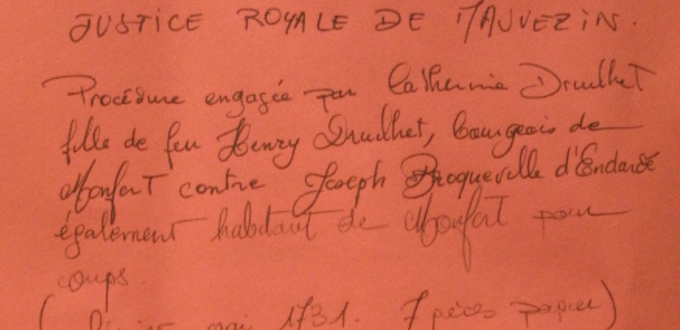 JUSTICE ROYALE DE MAUVEZIN.
Procédure engagée par Catherine Druilhet
fille de feu Henry Druilhet, bourgeois de
Monfort contre Joseph Broquevelle d'Endardé
également habitant de Monfort pour
coups.
(février mai 1731. 7 pièces papier)